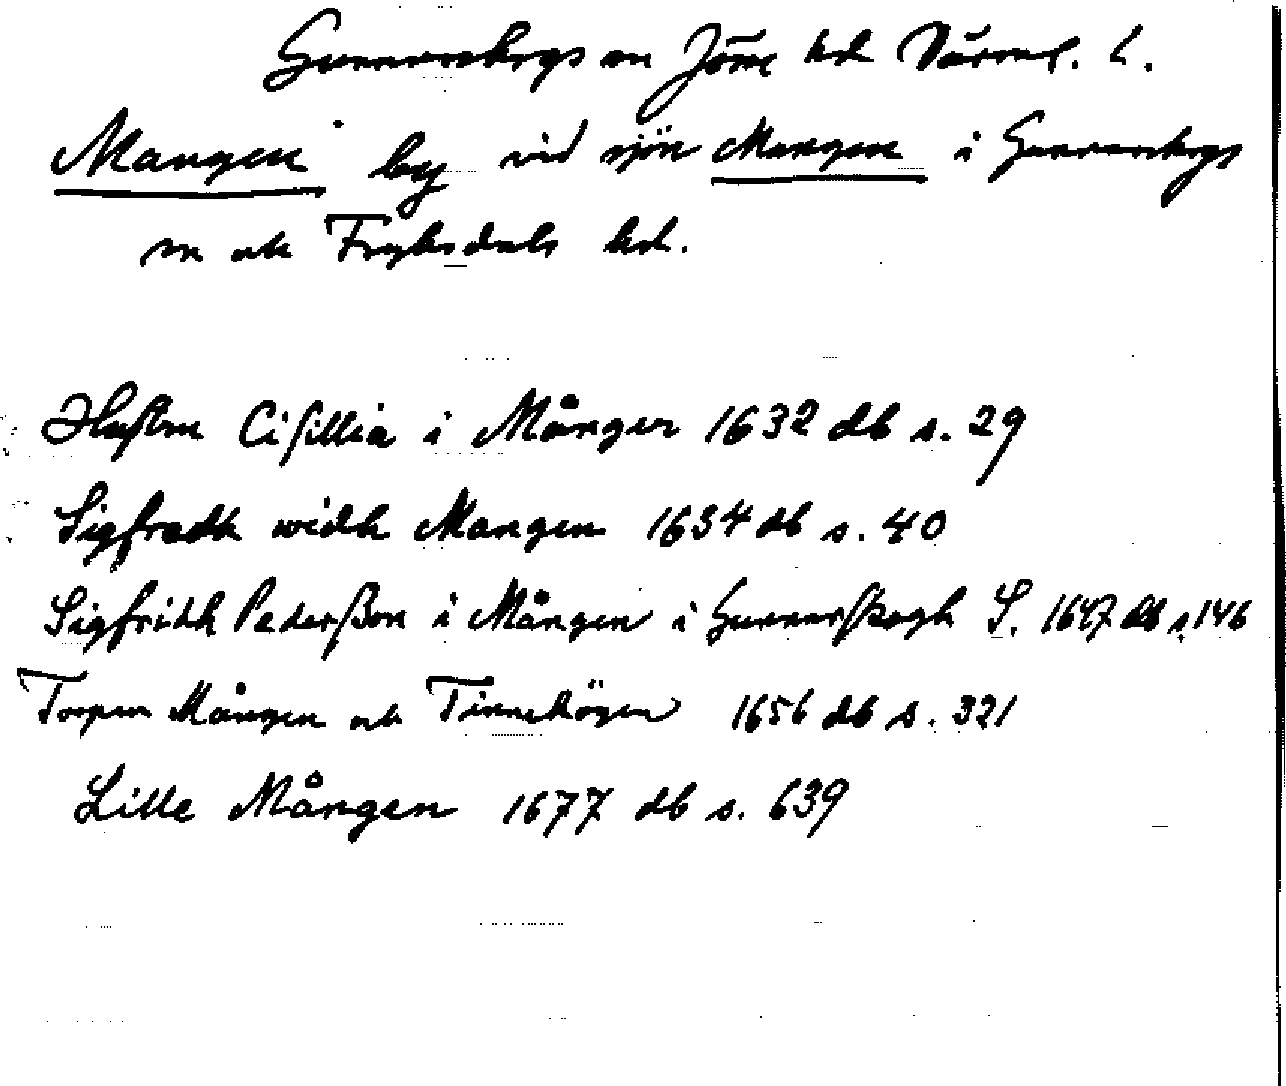 Gunnarskogs sn Jösse hd Värml. L.
Mangen by vid sjön Mangen i Gunnarskogs
sn och Fryksdals hd.
Hustru Cisillia i Mången 1632 db s. 29
Sigfredh widh Mangen 1634 db s. 40
Sigfridh Pederßon i Mången i Gunnerskogh S. 1647 db s 146
Torpen Mången och Tinnehögen 1656 db s. 321
Lille Mången 1677 db s. 639